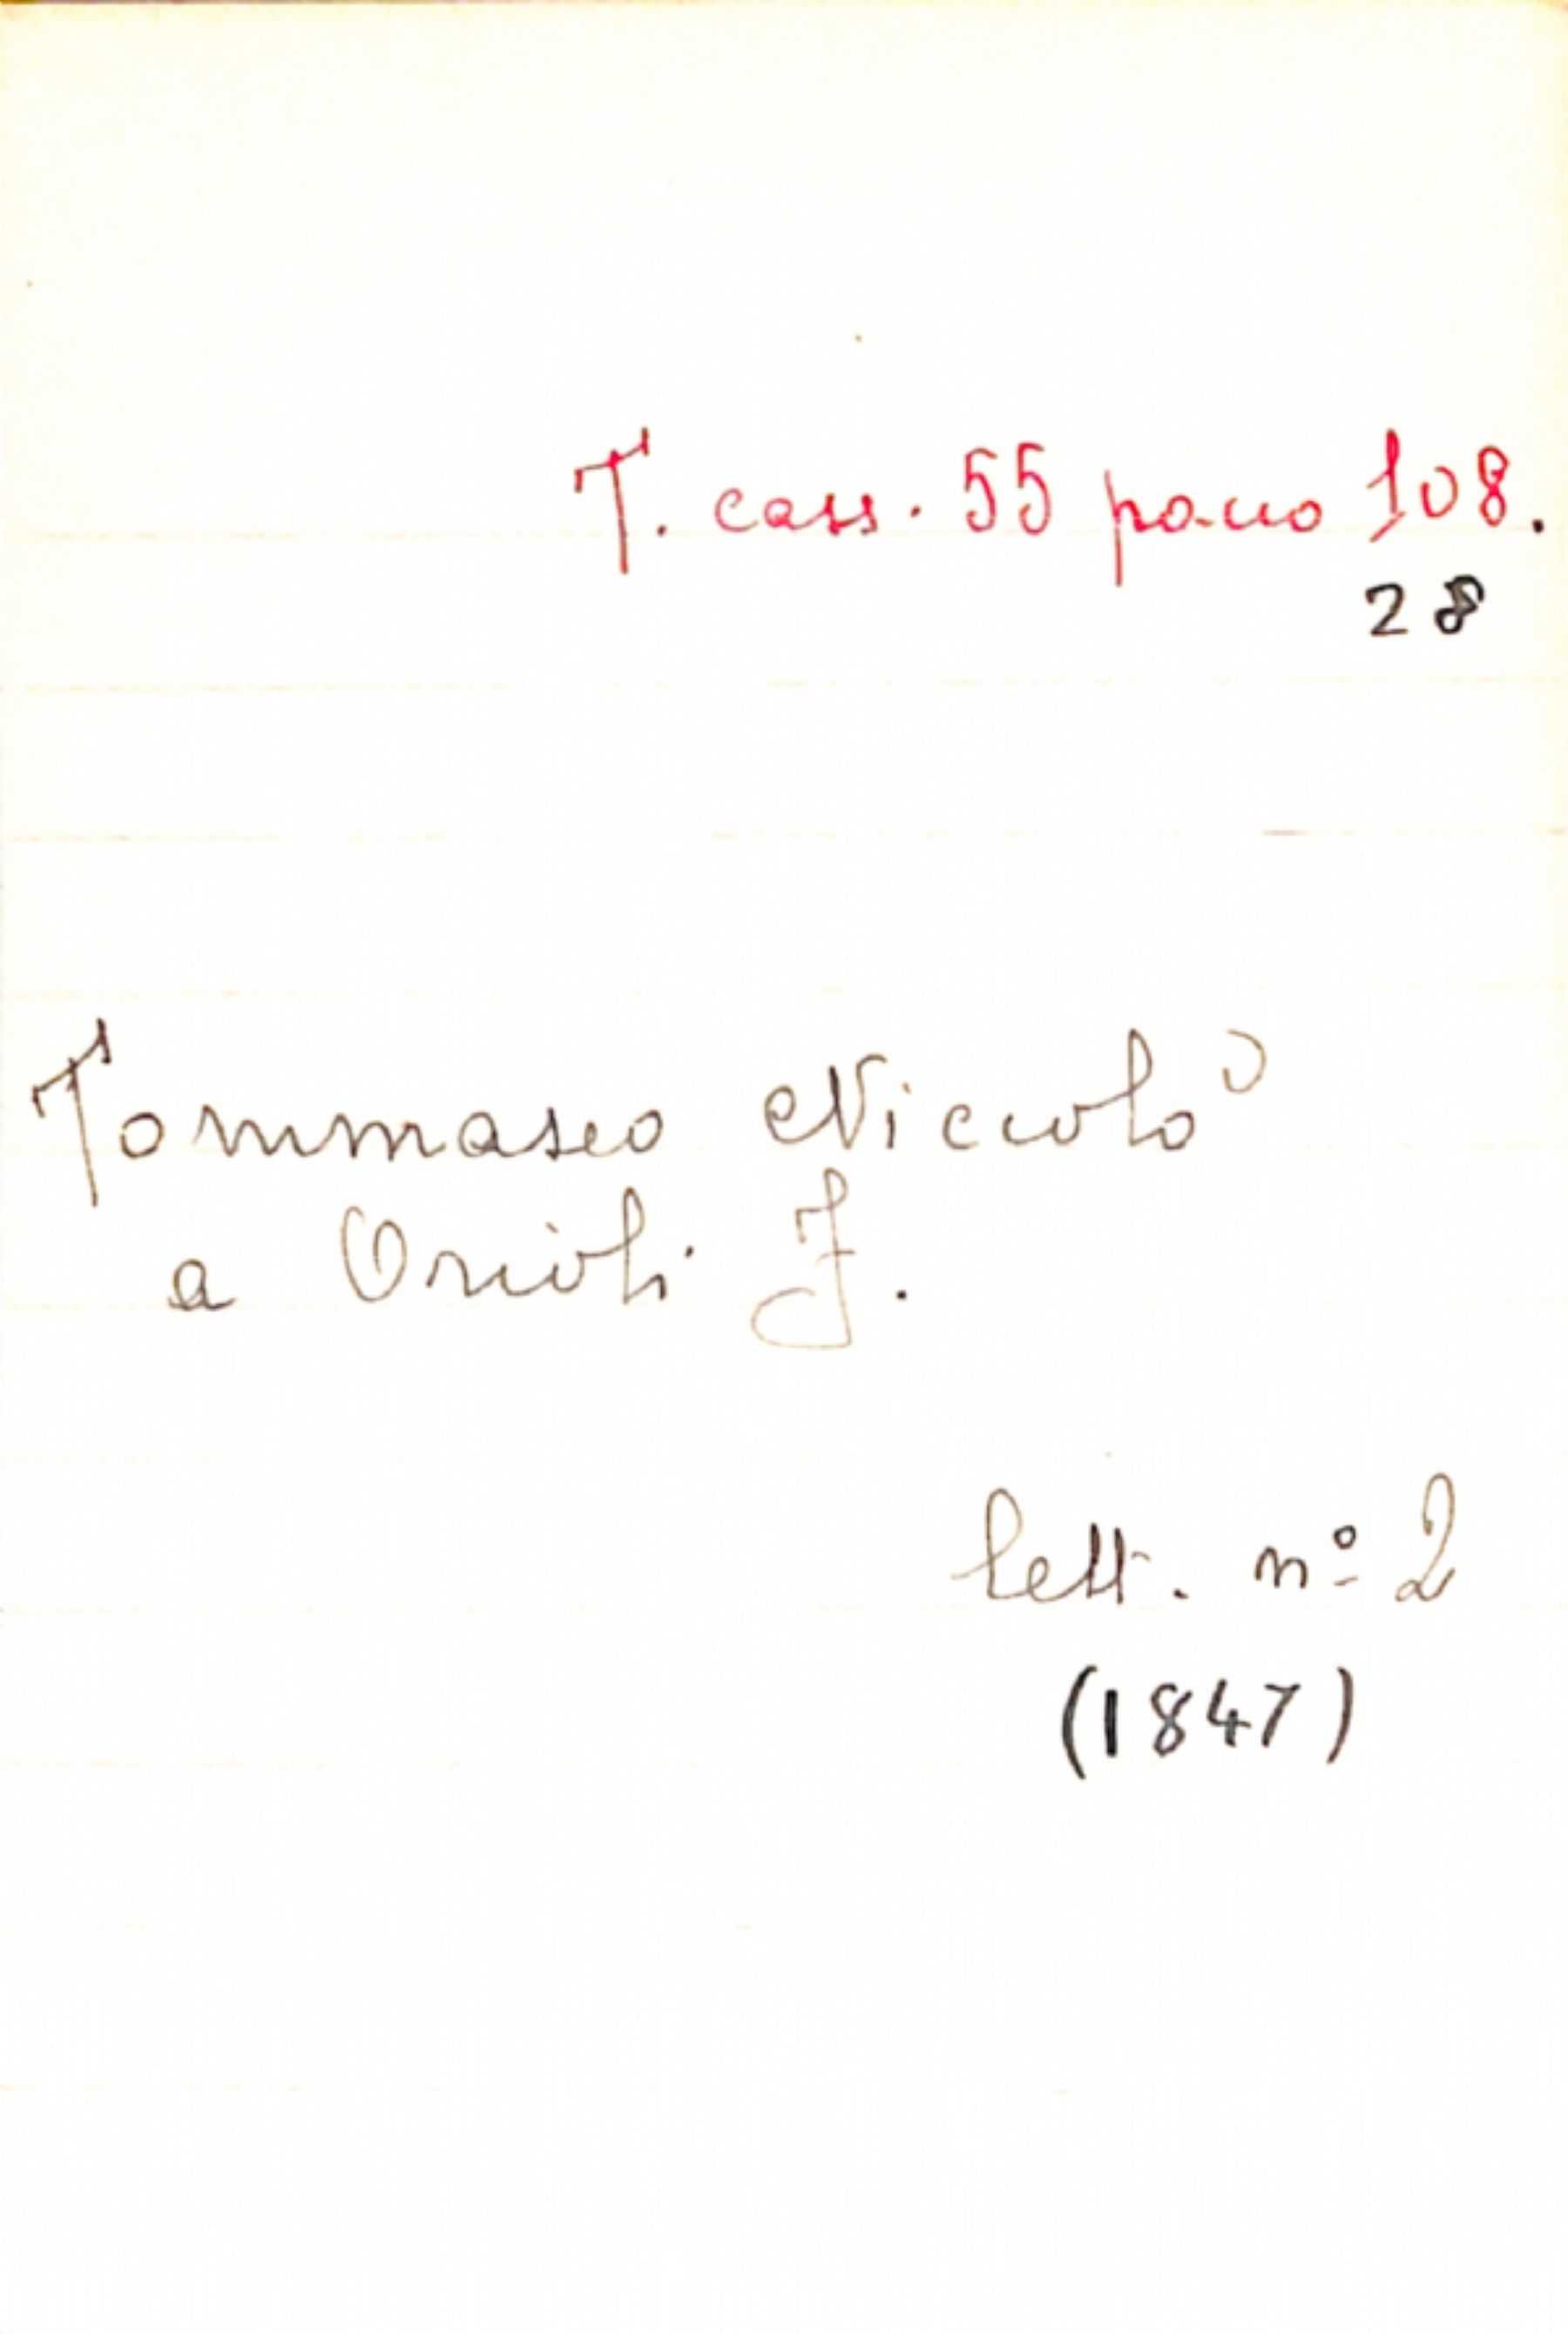 T. cass. 55 pacco 108.
28
Tommaseo Niccolò
a Orioli F.
lett. nº 2
(1847)